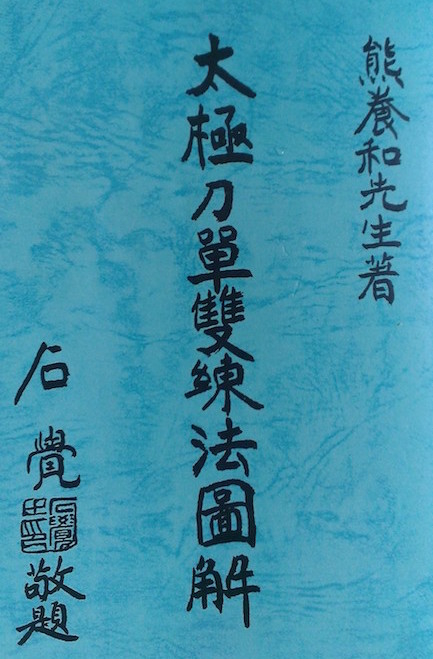 熊養和先生著
太極刀單雙練法圖解
石覺敬題
石覺之印